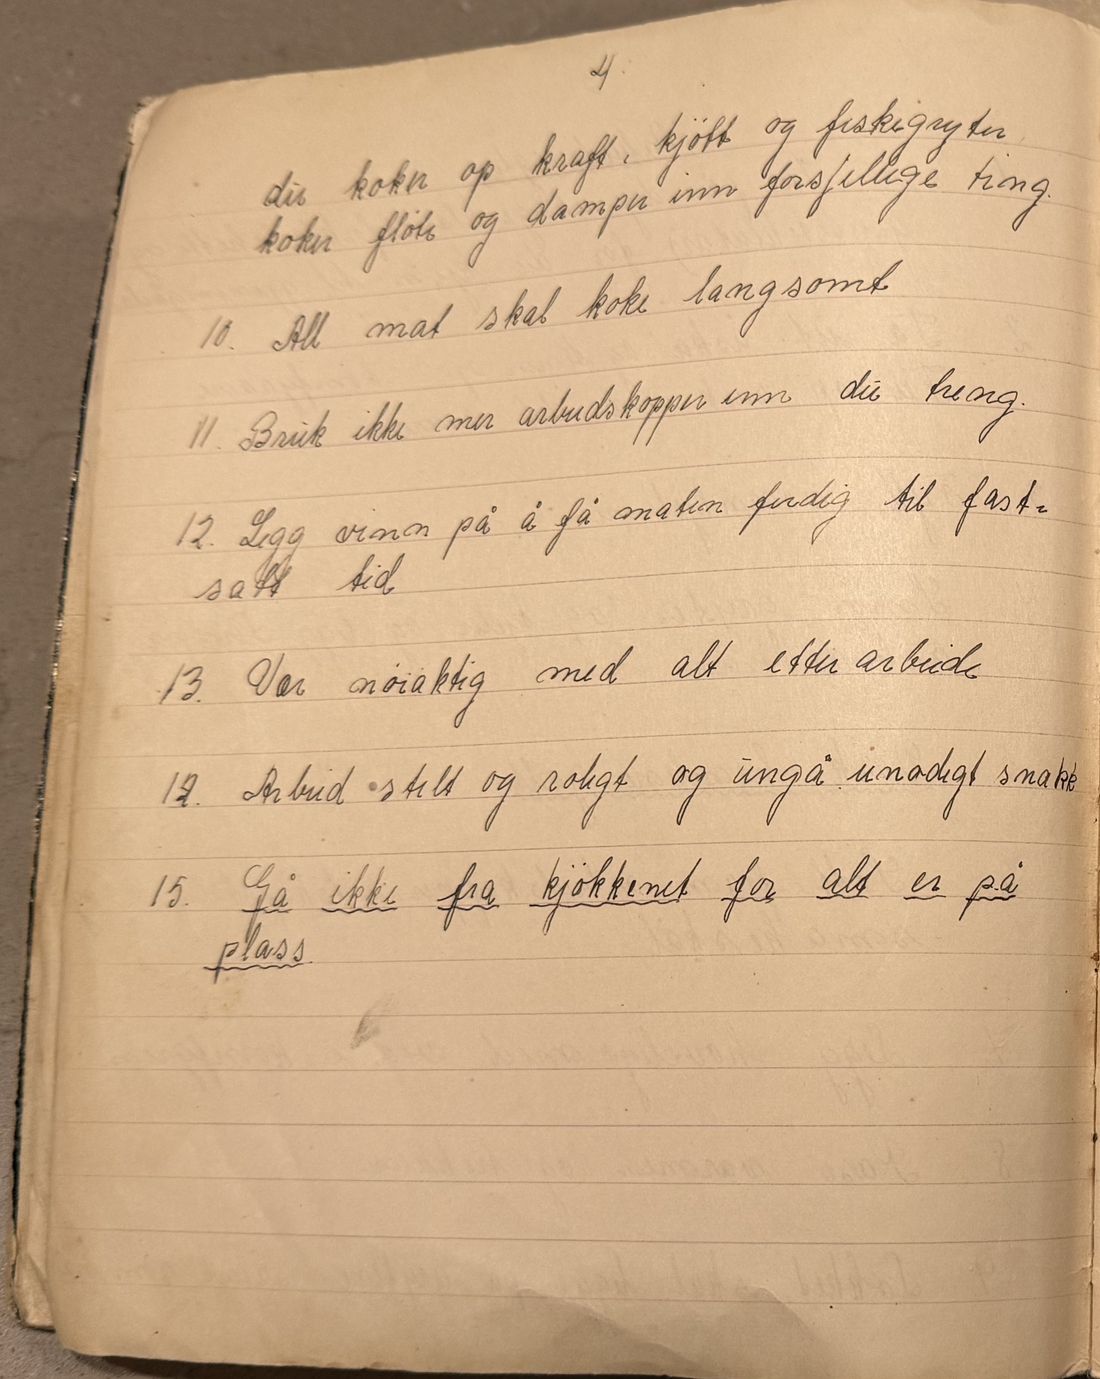 4.
du koker op kraft, kjøtt og fiskegryter
koker fløte og damper inn forsjellige ting.
10. All mat skal koke langsomt
11. Bruk ikke mer arbeidskopper enn du treng.
12. Legg vinn på å få maten ferdig til fast-
satt tid
13. Vær nøiaktig med alt etter arbeide
14. Arbeid stilt og roligt og ungå unødigt snakk
15. Gå ikke fra kjøkkenet for alt er på
plass.